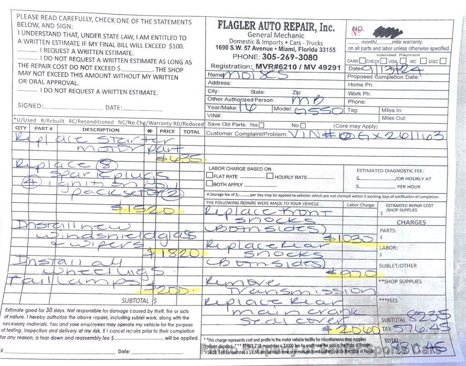 PLEASE READ CAREFULLY, CHECK ONE OF THE STATEMENTS
BELOW, AND SIGN:
I UNDERSTAND THAT, UNDER STATE LAW, I AM ENTITLED TO
A WRITTEN ESTIMATE IF MY FINAL BILL WILL EXCEED $100.
I REQUEST A WRITTEN ESTIMATE.
I DO NOT REQUEST A WRITTEN ESTIMATE AS LONG AS
THE REPAIR COST DO NOT EXCEED $ THE SHOP
MAY NOT EXCEED THIS AMOUNT WITHOUT MY WRITTEN
OR ORAL APPROVAL.
I DO NOT REQUEST A WRITTEN ESTIMATE.
SIGNED: DATE:
FLAGLER AUTO REPAIR, Inc.
General Mechanic
Domestic & Imports • Cars - Trucks
1690 S.W. 57 Avenue • Miami, Florida 33155
PHONE: 305-269-3080
Registration: MVR#6210 / MV 49291
month, mile warranty
on all parts and labor unless otherwise specified.
Intended Payment
CASH CHECK VISA MC DISC
Name: moises Date:
Proposed Completion Date:
Address: Home Ph:
City: State: Zip: Work Ph:
Other Authorized Person: Phone:
Year/Make: 16 MB Model: G550 Tag: Miles In:
VIN#: Miles Out:
*U/Used R/Rebuilt RC/Reconditioned NC/No Chg/Warranty RD/Reduced
Save Old Parts. Yes No (Core may Apply)
QTY PART # DESCRIPTION * PRICE TOTAL
Customer Complaint/Problem VIN# GGX261163
Replace starter
motor part
$635
Replace 8
spark plugs
4 ignition
$1520
Install new
windshield glass
& wipers
$1820
Install all
wheel lugs
Tail lamps $200
SUBTOTAL $
LABOR CHARGE BASED ON
FLAT RATE HOURLY RATE
BOTH APPLY
ESTIMATED DIAGNOSTIC FEE:
$ /OR HOURLY AT
$ PER HOUR
A storage fee of $ per day may be applied to vehicles which are not claimed within 3 working days of notification of completion
THE FOLLOWING REPAIRS WERE MADE TO YOUR VEHICLE Labor Charge ESTIMATED REPAIR COST
/SHOP SUPPLIES
Replace front
shocks
(both sides)
$1030
Replace Rear
shocks
(both sides)
$970
Remove
transmission
Replace Rear
main crank
seal cover
$2060
CHARGES
PARTS:
$
LABOR:
$
SUBLET/OTHER
**SHOP SUPPLIES
***FEES
SUBTOTAL 8235
TAX 576.45
TOTAL
Estimate good for 30 days. Not responsible for damage caused by theft, fire or acts
of nature. I hereby authorize the above repairs, including sublet work, along with the
necessary materials. You and your employees may operate my vehicle for the purpose
of testing, inspection and delivery at my risk. If I cancel repairs prior to their completion
for any reason, a tear down and reassembly fee $ will be applied.
X DATE
**This charge represents costs and profits to the motor vehicle facility for miscellaneous shop supplies